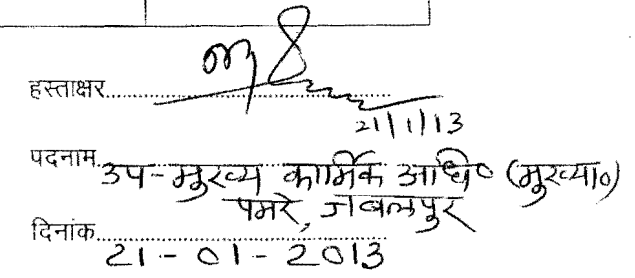 हस्ताक्षर
21/1/13
पदनाम उप-मुख्य कार्मिक अधि० (मुख्या०)
पमरे, जबलपुर
दिनांक 21-01-2013